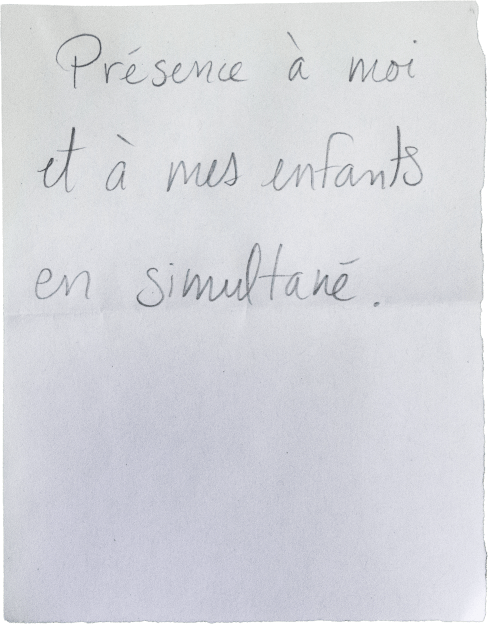 Présence à moi
et à mes enfants
en simultané.